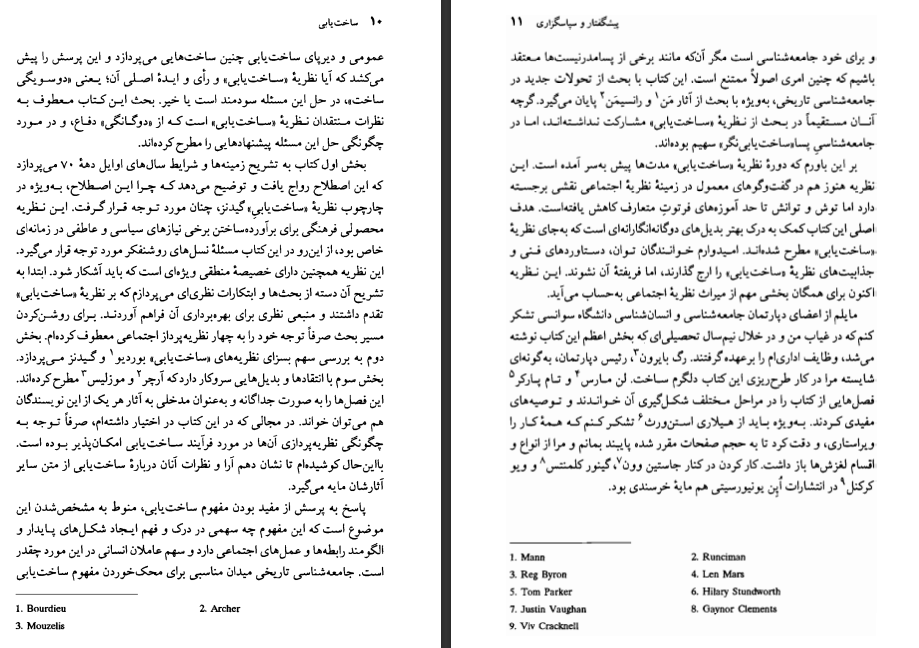 ۱۰ ساخت‌یابی
عمومی و دیرپای ساخت‌یابی چنین ساخت‌هایی می‌پردازد و این پرسش را پیش
می‌کشد که آیا نظریهٔ «ساخت‌یابی» و رأی و ایدهٔ اصلی آن؛ یعنی «دوسویگی
ساخت»، در حل این مسئله سودمند است یا خیر. بحث این کتاب معطوف به
نظرات منتقدان نظریهٔ «ساخت‌یابی» است که از «دوگانگی» دفاع، و در مورد
چگونگی حل این مسئله پیشنهادهایی را مطرح کرده‌اند.
بخش اول کتاب به تشریح زمینه‌ها و شرایط سال‌های اوایل دههٔ ۷۰ می‌پردازد
که این اصطلاح رواج یافت و توضیح می‌دهد که چرا این اصطلاح، به‌ویژه در
چارچوب نظریهٔ «ساخت‌یابیِ» گیدنز، چنان مورد توجه قرار گرفت. این نظریه
محصولی فرهنگی برای برآورده‌ساختن برخی نیازهای سیاسی و عاطفی در زمانه‌ای
خاص بود، از این‌رو در این کتاب مسئلهٔ نسل‌های روشنفکر مورد توجه قرار می‌گیرد.
این نظریه همچنین دارای خصیصهٔ منطقی ویژه‌ای است که باید آشکار شود. ابتدا به
تشریح آن دسته از بحث‌ها و ابتکارات نظری‌ای می‌پردازم که بر نظریهٔ «ساخت‌یابی»
تقدم داشتند و منبعی نظری برای بهره‌برداری آن فراهم آوردند. برای روشن‌کردن
مسیر بحث صرفاً توجه خود را به چهار نظریه‌پرداز اجتماعی معطوف کرده‌ام. بخش
دوم به بررسی سهم بسزای نظریه‌های «ساخت‌یابی» بوردیو۱ و گیدنز می‌پردازد.
بخش سوم با انتقادها و بدیل‌هایی سروکار دارد که آرچر۲ و موزلیس۳ مطرح کرده‌اند.
این فصل‌ها را به صورت جداگانه و به‌عنوان مدخلی به آثار هر یک از این نویسندگان
هم می‌توان خواند. در مجالی که در این کتاب در اختیار داشته‌ام، صرفاً توجه به
چگونگی نظریه‌پردازی آن‌ها در مورد فرآیند ساخت‌یابی امکان‌پذیر بوده است.
بااین‌حال کوشیده‌ام تا نشان دهم آرا و نظرات آنان دربارهٔ ساخت‌یابی از متن سایر
آثارشان مایه می‌گیرد.
پاسخ به پرسش از مفید بودن مفهوم ساخت‌یابی، منوط به مشخص‌شدن این
موضوع است که این مفهوم چه سهمی در درک و فهم ایجاد شکل‌های پایدار و
الگومند رابطه‌ها و عمل‌های اجتماعی دارد و سهم عاملان انسانی در این مورد چقدر
است. جامعه‌شناسی تاریخی میدان مناسبی برای محک‌خوردن مفهوم ساخت‌یابی
1. Bourdieu 2. Archer
3. Mouzelis
پیشگفتار و سپاسگزاری ۱۱
و برای خود جامعه‌شناسی است مگر آن‌که مانند برخی از پسامدرنیست‌ها معتقد
باشیم که چنین امری اصولاً ممتنع است. این کتاب با بحث از تحولات جدید در
جامعه‌شناسی تاریخی، به‌ویژه با بحث از آثار مَن۱ و رانسیمَن۲ پایان می‌گیرد. گرچه
آنان مستقیماً در بحث از نظریهٔ «ساخت‌یابی» مشارکت نداشته‌اند، اما در
جامعه‌شناسیِ پسا«ساخت‌یابی‌نگر» سهیم بوده‌اند.
بر این باورم که دورهٔ نظریهٔ «ساخت‌یابی» مدت‌ها پیش به‌سر آمده است. این
نظریه هنوز هم در گفت‌وگوهای معمول در زمینهٔ نظریهٔ اجتماعی نقشی برجسته
دارد اما توش و توانش تا حد آموزه‌های فرتوتِ متعارف کاهش یافته‌است. هدف
اصلی این کتاب کمک به درک بهتر بدیل‌های دوگانه‌انگارانه‌ای است که به‌جای نظریهٔ
«ساخت‌یابی» مطرح شده‌اند. امیدوارم خوانندگان توان، دستاوردهای فنی و
جذابیت‌های نظریهٔ «ساخت‌یابی» را ارج گذارند، اما فریفتهٔ آن نشوند. این نظریه
اکنون برای همگان بخشی مهم از میراث نظریهٔ اجتماعی به‌حساب می‌آید.
مایلم از اعضای دپارتمان جامعه‌شناسی و انسان‌شناسی دانشگاه سوانسی تشکر
کنم که در غیاب من و در خلال نیم‌سال تحصیلی‌ای که بخش اعظم این کتاب نوشته
می‌شد، وظایف اداری‌ام را برعهده گرفتند. رگ بایرون۳، رئیس دپارتمان، به‌گونه‌ای
شایسته مرا در کار طرح‌ریزی این کتاب دلگرم ساخت. لن مارس۴ و تام پارکر۵
فصل‌هایی از کتاب را در مراحل مختلف شکل‌گیری آن خواندند و توصیه‌های
مفیدی کردند. به‌ویژه باید از هیلاری استن‌ورث۶ تشکر کنم که همهٔ کار را
ویراستاری، و دقت کرد تا به حجم صفحات مقرر شده پایبند بمانم و مرا از انواع و
اقسام لغزش‌ها باز داشت. کار کردن در کنار جاستین وون۷، گینور کلمنتس۸ و ویو
کرکنل۹ در انتشارات اُپِن یونیورسیتی هم مایهٔ خرسندی بود.
1. Mann 2. Runciman
3. Reg Byron 4. Len Mars
5. Tom Parker 6. Hilary Stundworth
7. Justin Vaughan 8. Gaynor Clements
9. Viv Cracknell